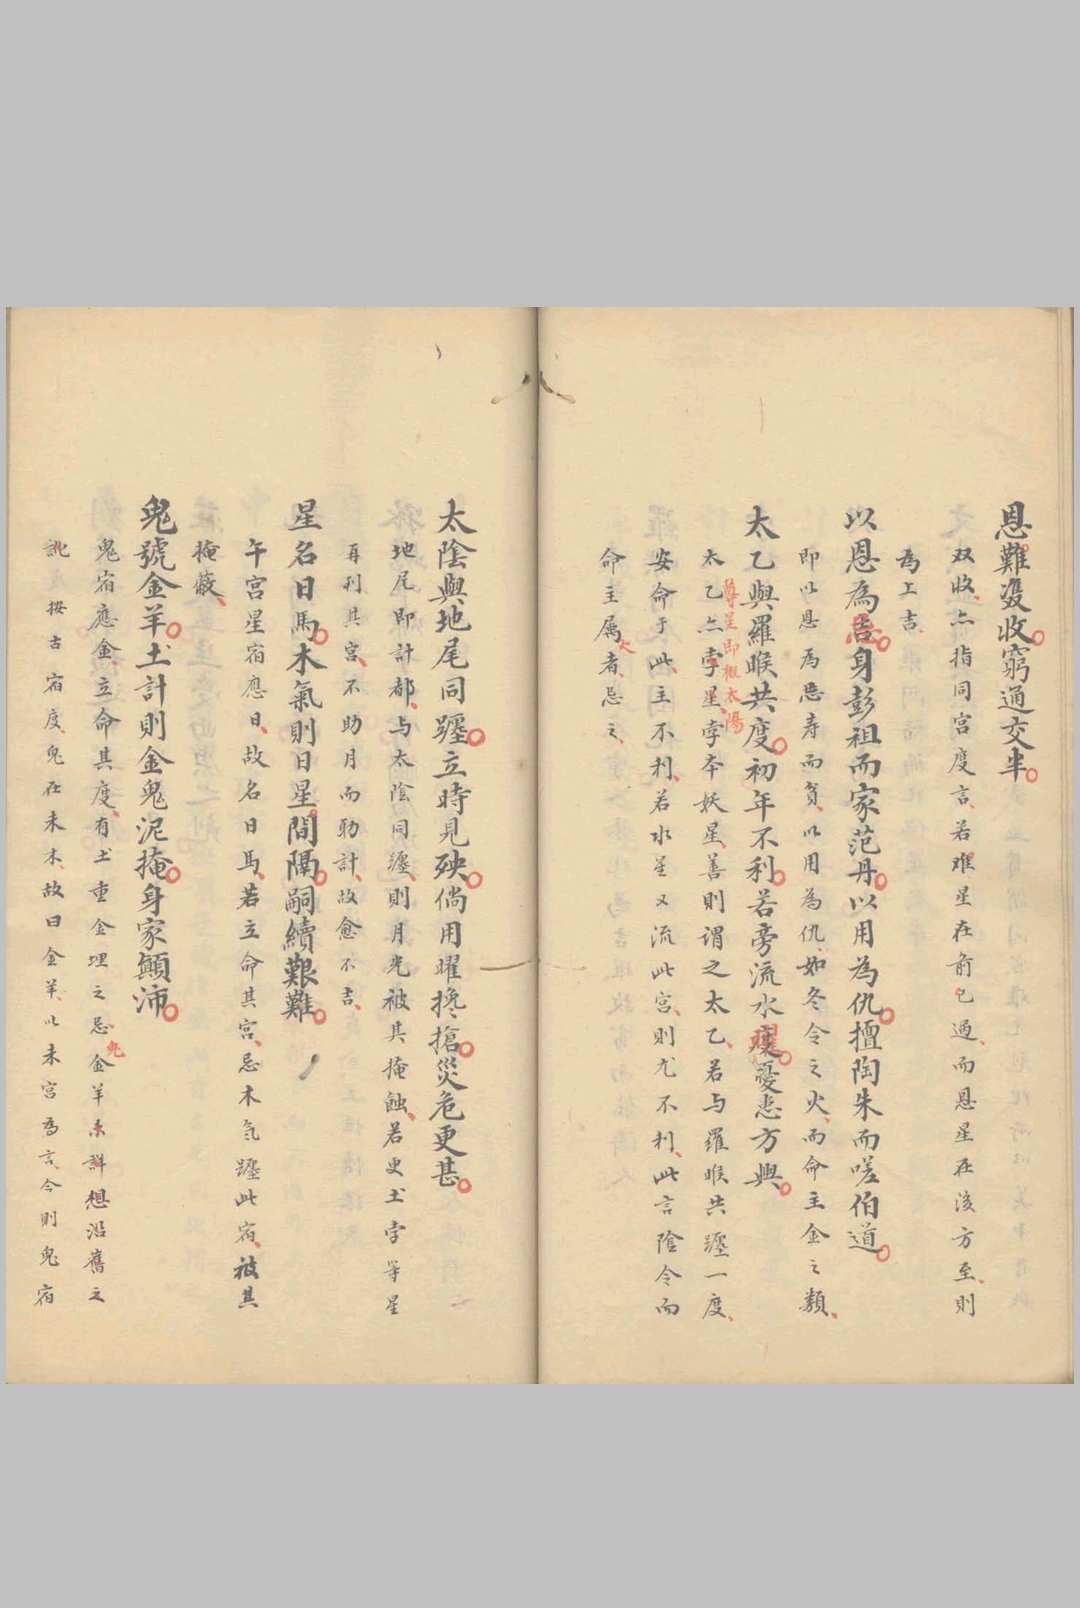 恩難双收窮通交半
双收亦指同宮度言若难星在前已過而恩星在後方至則
為上吉
以恩為忌身彭祖而家范丹以用為仇擅陶朱而嗟伯道
即以恩為忌寿而貧以用為仇如冬令之火而命主金之類
太乙與羅睺共度初年不利若旁流水曜憂恙方興
太乙亦孛星孛本妖星善則谓之太乙若与羅睺共躔一度
尊星即板太陽
安命于此主不利若水星又流此宮則尤不利此言陰令而
命主属火者忌之
太陰與地尾同躔立時見殃倘用曜攙搶災危更甚
地尾即計都与太陰同躔則月光被其掩蝕若更土孛等星
再刋其宮不助月而助計故愈不吉
星名日馬木氣則日星間隔嗣續艱難
午宮星宿應日故名日馬若立命其宮忌木气躔此宿被其
掩蔽
鬼號金羊土計則金鬼泥掩身家顛沛
鬼宿應金立命其度有土重金埋之忌金羊未詳想沿舊之
鬼
訛 按古宿度鬼在未末故曰金羊以未宮為言今則鬼宿